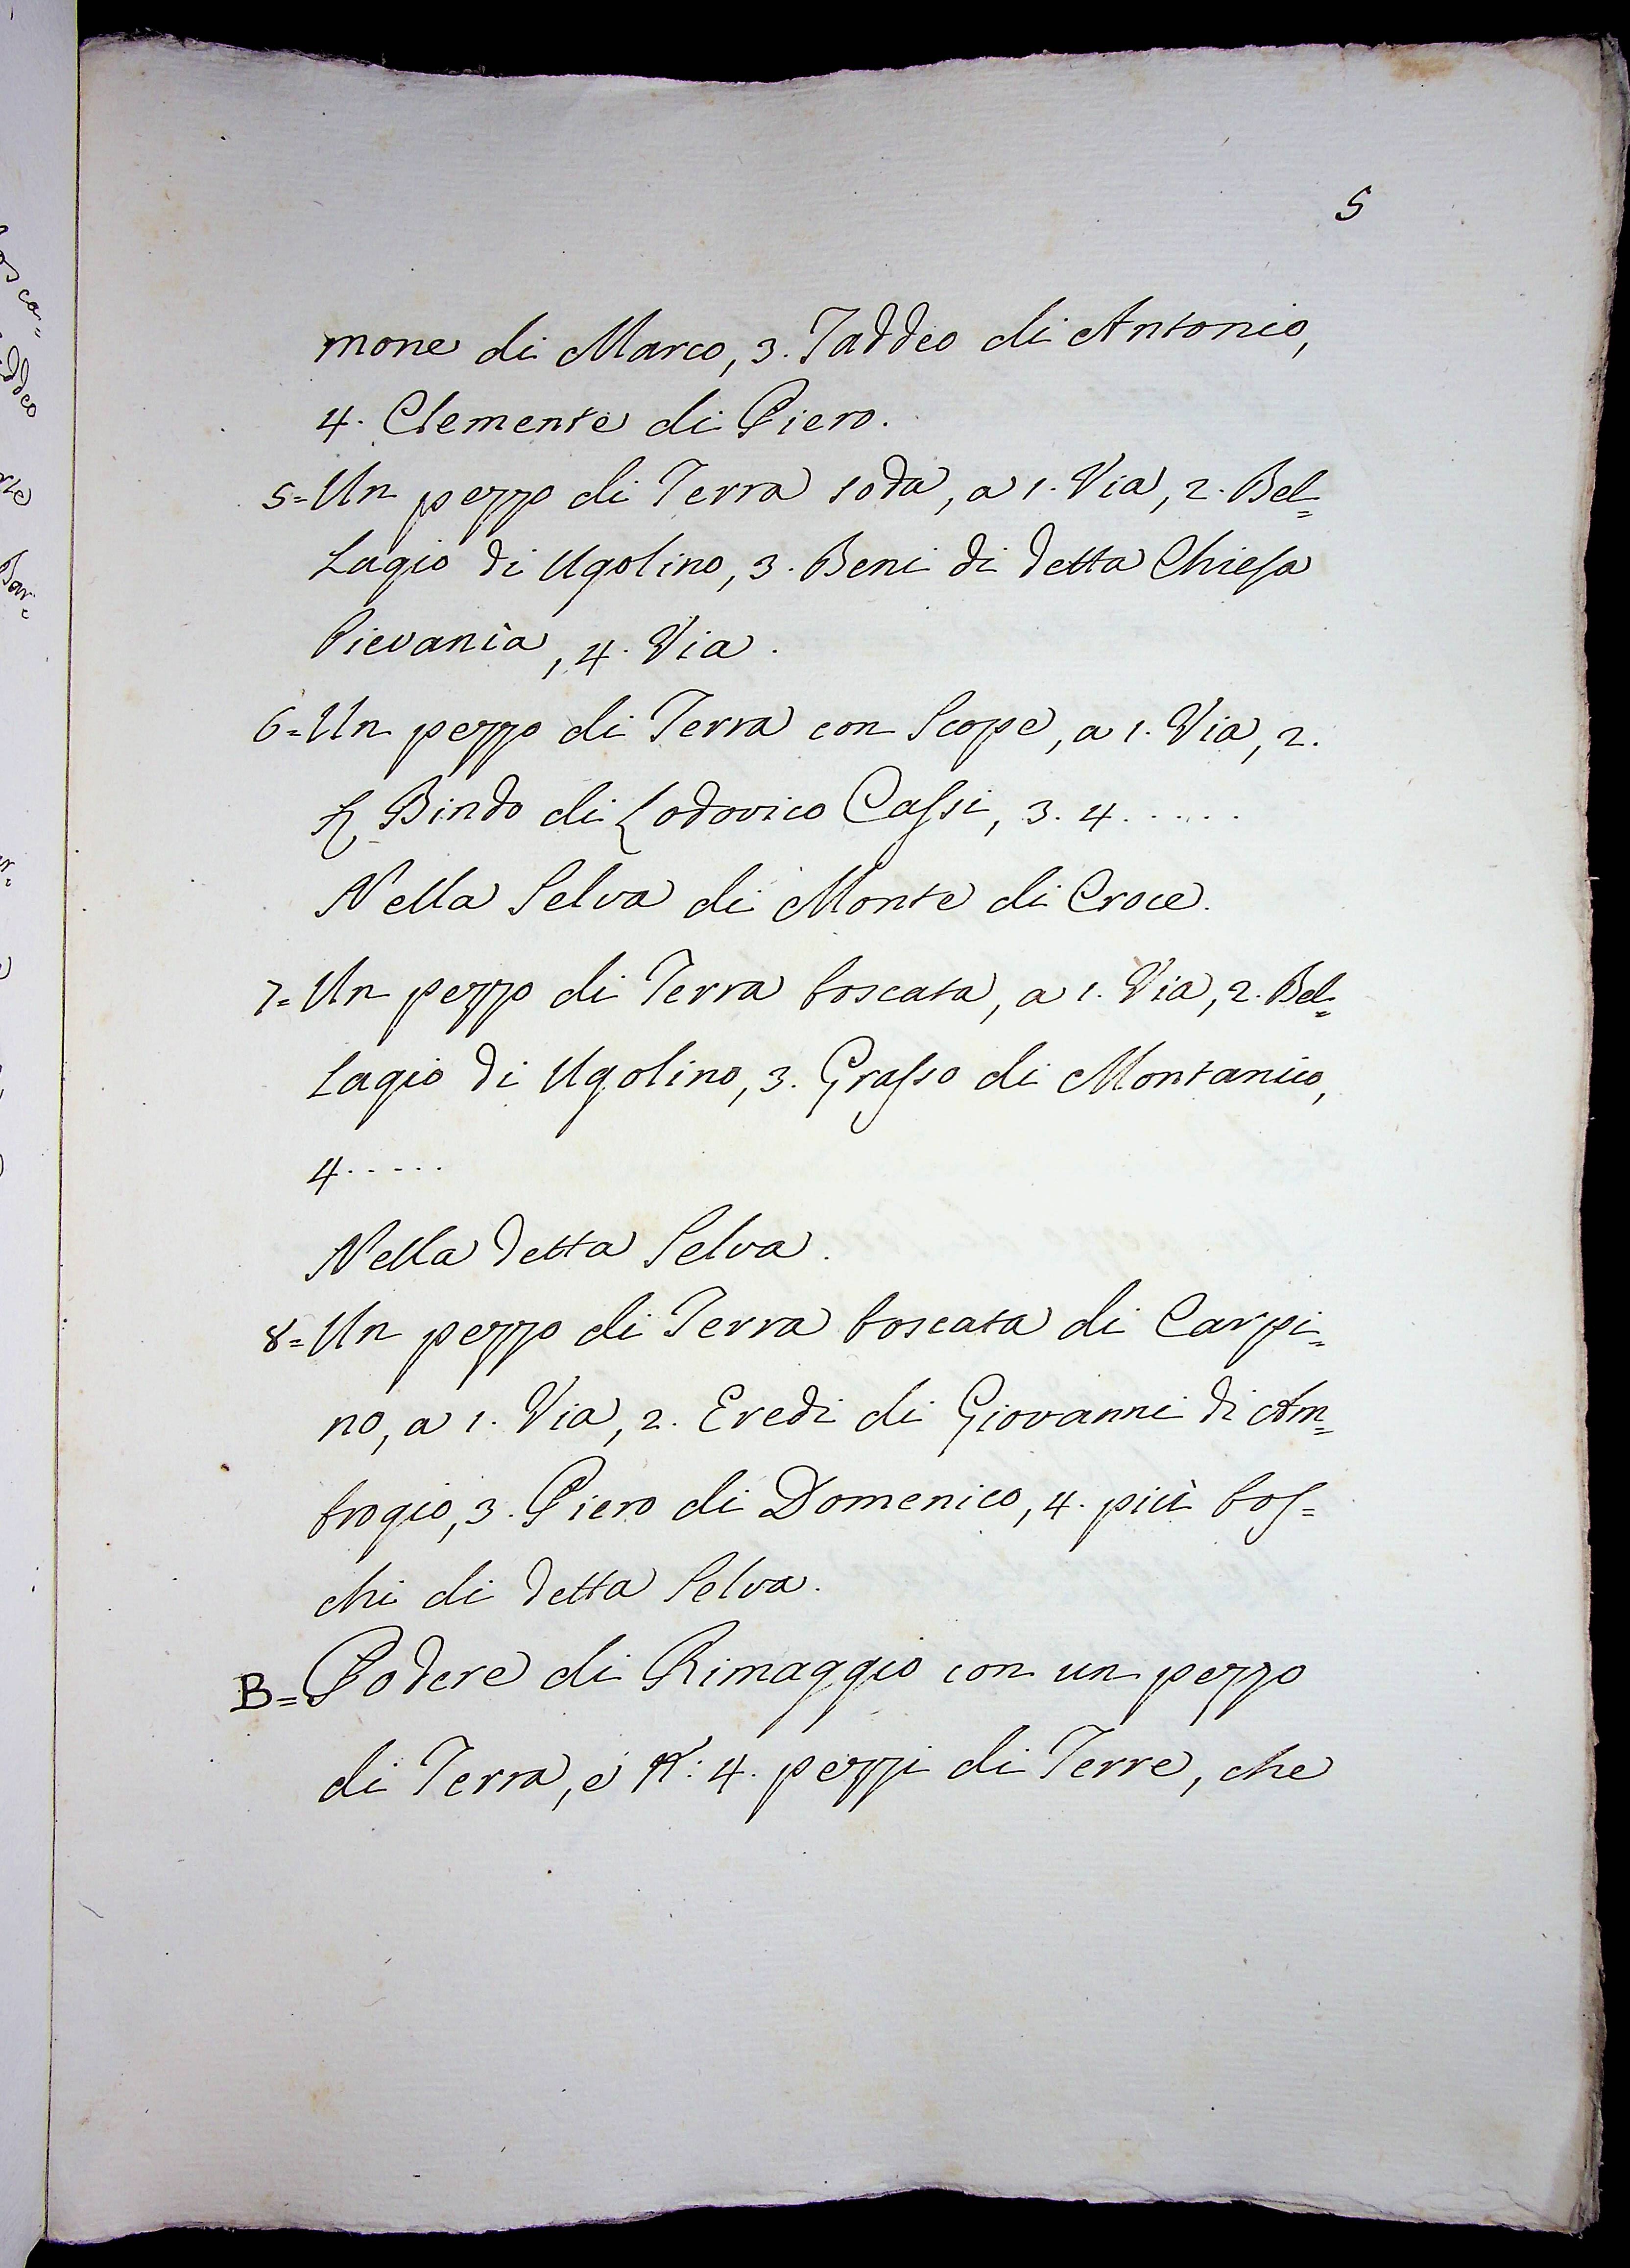 5
mone di Marco, 3. Taddeo di Antonio,
4. Clemente di Piero.
5= Un pezzo di Terra soda, a 1. Via, 2. Bel=
lagio di Ugolino, 3. Beni di detta Chiesa
Pievania, 4. Via.
6= Un pezzo di Terra con Scope, a 1. Via, 2.
Bindo di Lodovico Cassi, 3. 4......
Nella Selva di Monte di Croce.
7= Un pezzo di Terra boscata, a 1. Via, 2. Bel=
lagio di Ugolino, 3. Grasso di Montanico,
4.....
Nella detta Selva.
8= Un pezzo di Terra boscata di Carpi=
no, a 1. Via, 2. Eredi di Giovanni di Am=
brogio, 3. Piero di Domenico, 4. più bos=
chi di detta Selva.
B= Podere di Rimaggio con un pezzo
di Terra, e N: 4. pezzi di Terre, che